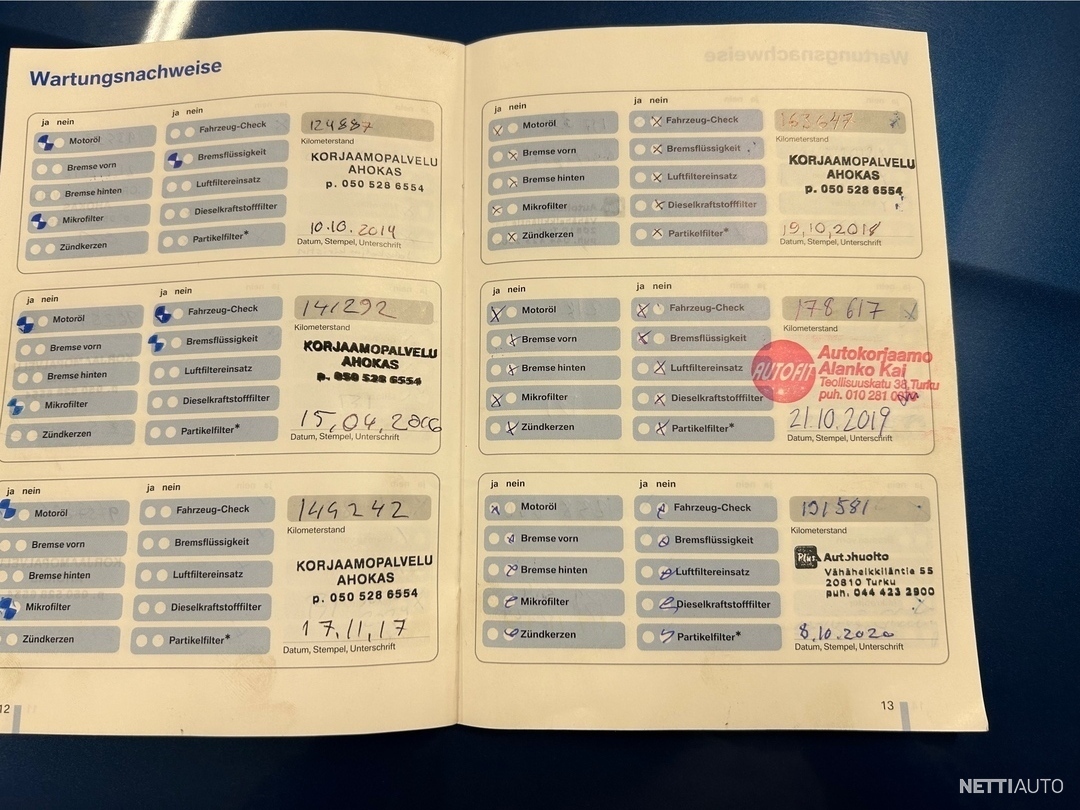 Wartungsnachweise
ja nein
ja nein
Motoröl
Fahrzeug-Check
Bremse vorn
Bremsflüssigkeit
Bremse hinten
Luftfiltereinsatz
Mikrofilter
Dieselkraftstofffilter
Zündkerzen
Partikelfilter*
124887
Kilometerstand
KORJAAMOPALVELU
AHOKAS
p. 050 528 6554
10.10.2014
Datum, Stempel, Unterschrift
ja nein
ja nein
Motoröl
Fahrzeug-Check
Bremse vorn
Bremsflüssigkeit
Bremse hinten
Luftfiltereinsatz
Mikrofilter
Dieselkraftstofffilter
Zündkerzen
Partikelfilter*
141292
Kilometerstand
KORJAAMOPALVELU
AHOKAS
p. 050 528 6554
15.04.
Datum, Stempel, Unterschrift
ja nein
ja nein
Motoröl
Fahrzeug-Check
Bremse vorn
Bremsflüssigkeit
Bremse hinten
Luftfiltereinsatz
Mikrofilter
Dieselkraftstofffilter
Zündkerzen
Partikelfilter*
149242
Kilometerstand
KORJAAMOPALVELU
AHOKAS
p. 050 528 6554
17.11.17
Datum, Stempel, Unterschrift
12
ja nein
ja nein
Motoröl
Fahrzeug-Check
Bremse vorn
Bremsflüssigkeit
Bremse hinten
Luftfiltereinsatz
Mikrofilter
Dieselkraftstofffilter
Zündkerzen
Partikelfilter*
163647
Kilometerstand
KORJAAMOPALVELU
AHOKAS
p. 050 528 6554
19.10.2018
Datum, Stempel, Unterschrift
ja nein
ja nein
Motoröl
Fahrzeug-Check
Bremse vorn
Bremsflüssigkeit
Bremse hinten
Luftfiltereinsatz
Mikrofilter
Dieselkraftstofffilter
Zündkerzen
Partikelfilter*
178617
Kilometerstand
AUTOFIT
Autokorjaamo
Alanko Kai
Teollisuuskatu 38, Turku
puh. 010 281
21.10.2019
Datum, Stempel, Unterschrift
ja nein
ja nein
Motoröl
Fahrzeug-Check
Bremse vorn
Bremsflüssigkeit
Bremse hinten
Luftfiltereinsatz
Mikrofilter
Dieselkraftstofffilter
Zündkerzen
Partikelfilter*
191581
Kilometerstand
Plus Autohuolto
Vähäheikkiläntie 55
20810 Turku
puh. 044 423 2900
8.10.2020
Datum, Stempel, Unterschrift
13
NETTIAUTO